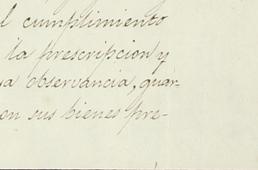 l cumplimiento
la prescripcion y
sa observancia, quar-
on sus bienes pre-